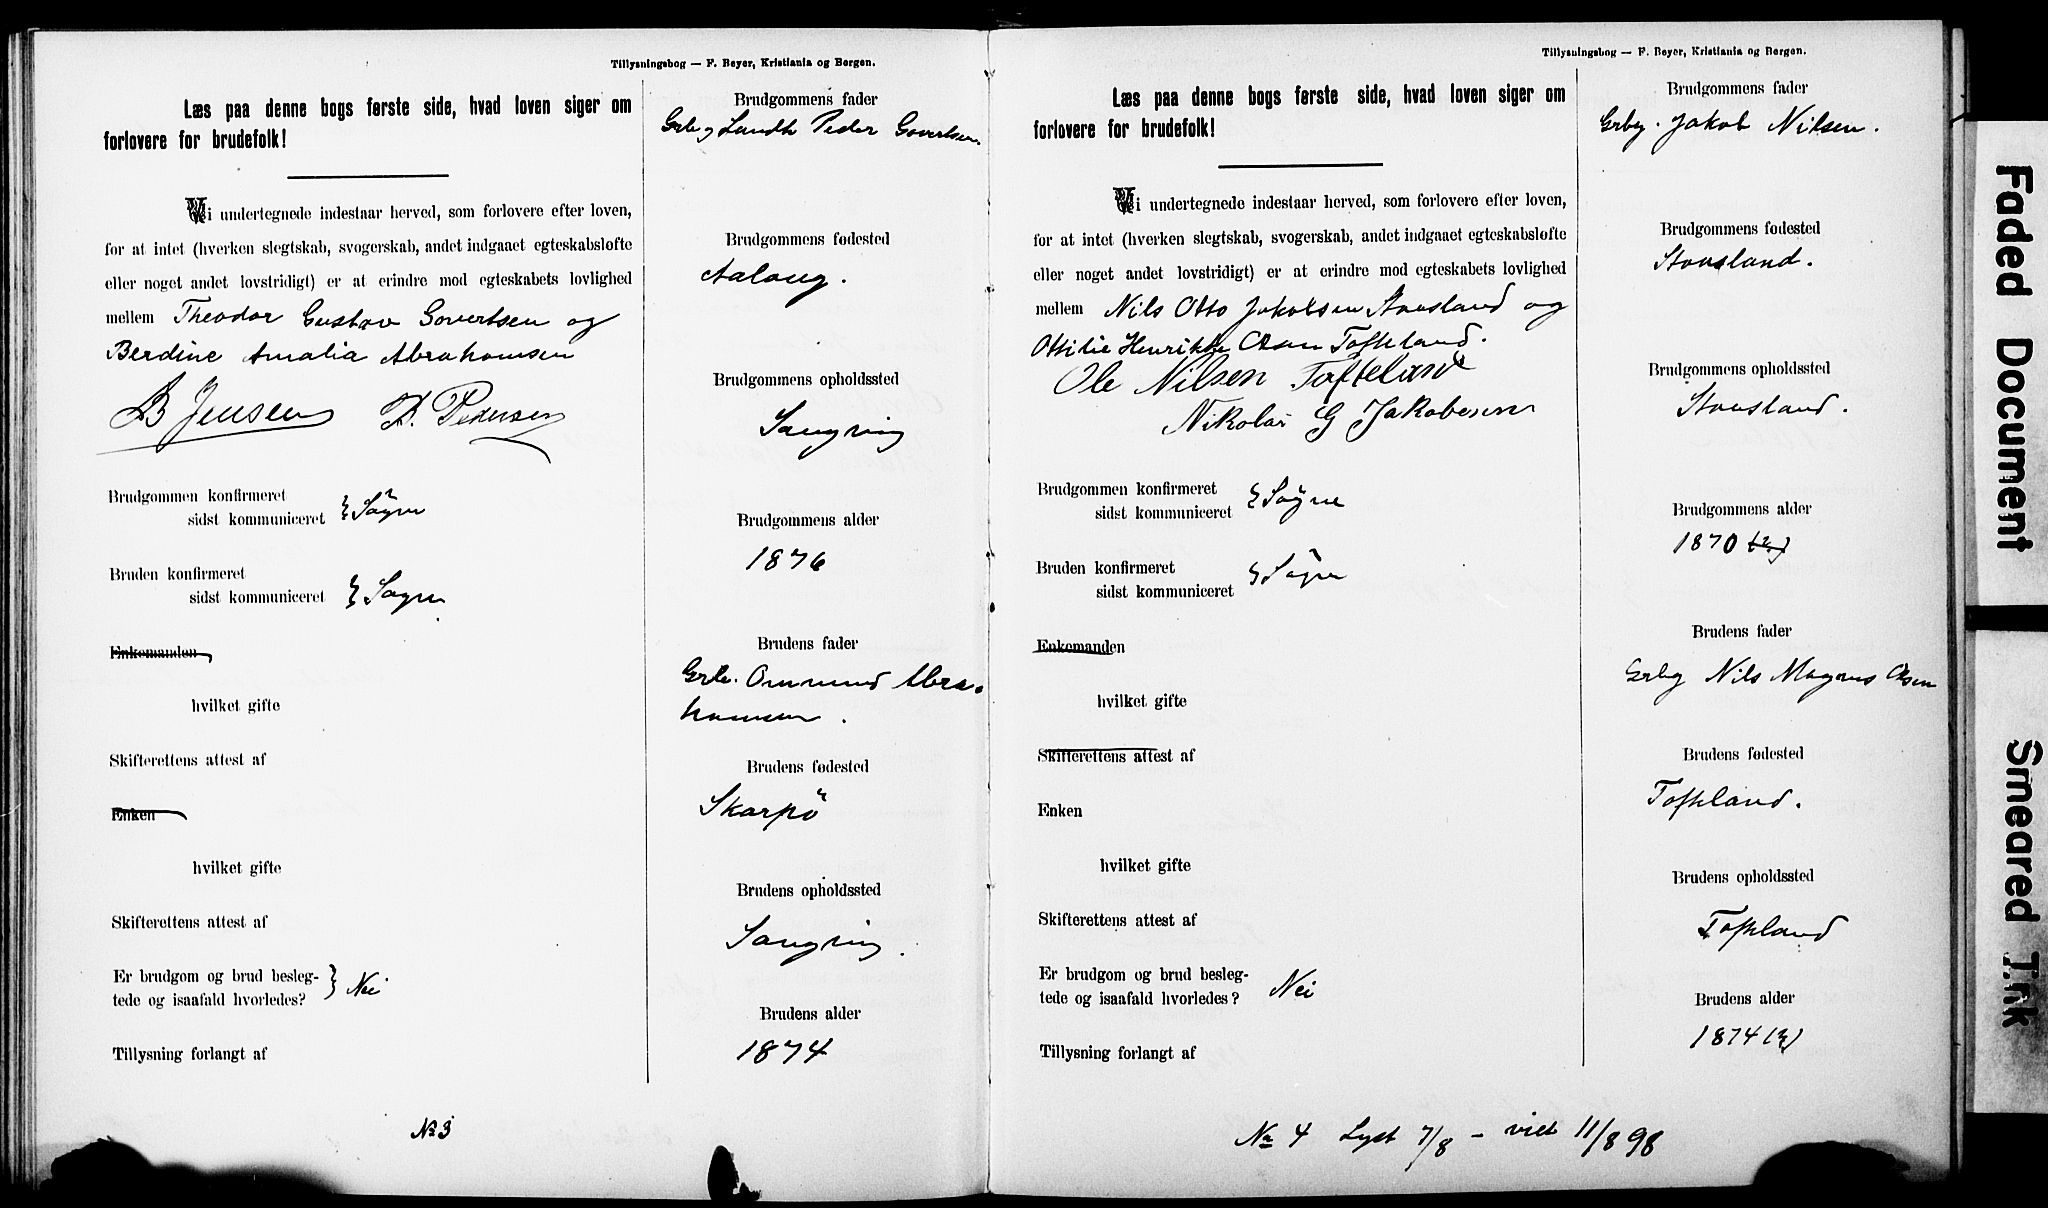 Tillysningsbog — F. Beyer, Kristiania og Bergen.
Læs paa denne bogs første side, hvad loven siger om
forlovere for brudefolk!
Vi undertegnede indestaar herved, som forlovere efter loven,
for at intet (hverken slegtskab, svogerskab, andet indgaaet egteskabsløfte
eller noget andet lovstridigt) er at erindre mod egteskabets lovlighed
mellem Theodor Gustav Govertsen og
Berdine Amalia Abrahamsen
B Jensen P. Pedersen
Brudgommen konfirmeret
sidst kommuniceret } Søgne
Bruden konfirmeret
sidst kommuniceret } Søgne
Enkemanden
hvilket gifte
Skifterettens attest af
Enken
hvilket gifte
Skifterettens attest af
Er brudgom og brud besleg-
tede og isaafald hvorledes? } Nei
Tillysning forlangt af
No 3
Brudgommens fader
Peder Govertsen.
Brudgommens fødested
Aalong.
Brudgommens opholdssted
Sangvig
Brudgommens alder
1876
Brudens fader
Grb. Ommund Abra-
hamsen.
Brudens fødested
Skarpö
Brudens opholdssted
Sangvig.
Brudens alder
1874
Tillysningsbog — F. Beyer, Kristiania og Bergen.
Læs paa denne bogs første side, hvad loven siger om
forlovere for brudefolk!
Vi undertegnede indestaar herved, som forlovere efter loven,
for at intet (hverken slegtskab, svogerskab, andet indgaaet egteskabsløfte
eller noget andet lovstridigt) er at erindre mod egteskabets lovlighed
mellem Nils Otto Jakobsen Stousland og
Ottilie Henrikke Olsen Tofteland.
Ole Nilsen Tofteland
Nikolai G Jakobsen
Brudgommen konfirmeret
sidst kommuniceret } Søgne
Bruden konfirmeret
sidst kommuniceret } Søgne
Enkemanden
hvilket gifte
Skifterettens attest af
Enken
hvilket gifte
Skifterettens attest af
Er brudgom og brud besleg-
tede og isaafald hvorledes? Nei
Tillysning forlangt af
No 4 Lyst 7/8 - viet 11/8 98
Brudgommens fader
Grbg. Jakob Nilsen.
Brudgommens fødested
Stousland.
Brudgommens opholdssted
Stousland.
Brudgommens alder
1870
Brudens fader
Grbg Nils Magnus Olsen
Brudens fødested
Tofteland.
Brudens opholdssted
Tofteland
Brudens alder
1874
Faded Document
Smeared Ink